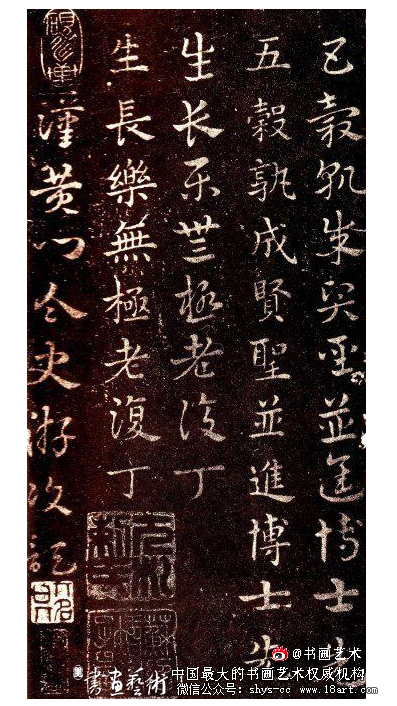 五穀孰成賢聖並進博士
五穀孰成賢聖並進博士先
生長樂無極老復丁
生長樂無極老復丁
漢黄門令史游次
@书画艺术
書畫藝術
中国最大的书画艺术权威机构
微信公众号: shys-cc www.18art.com